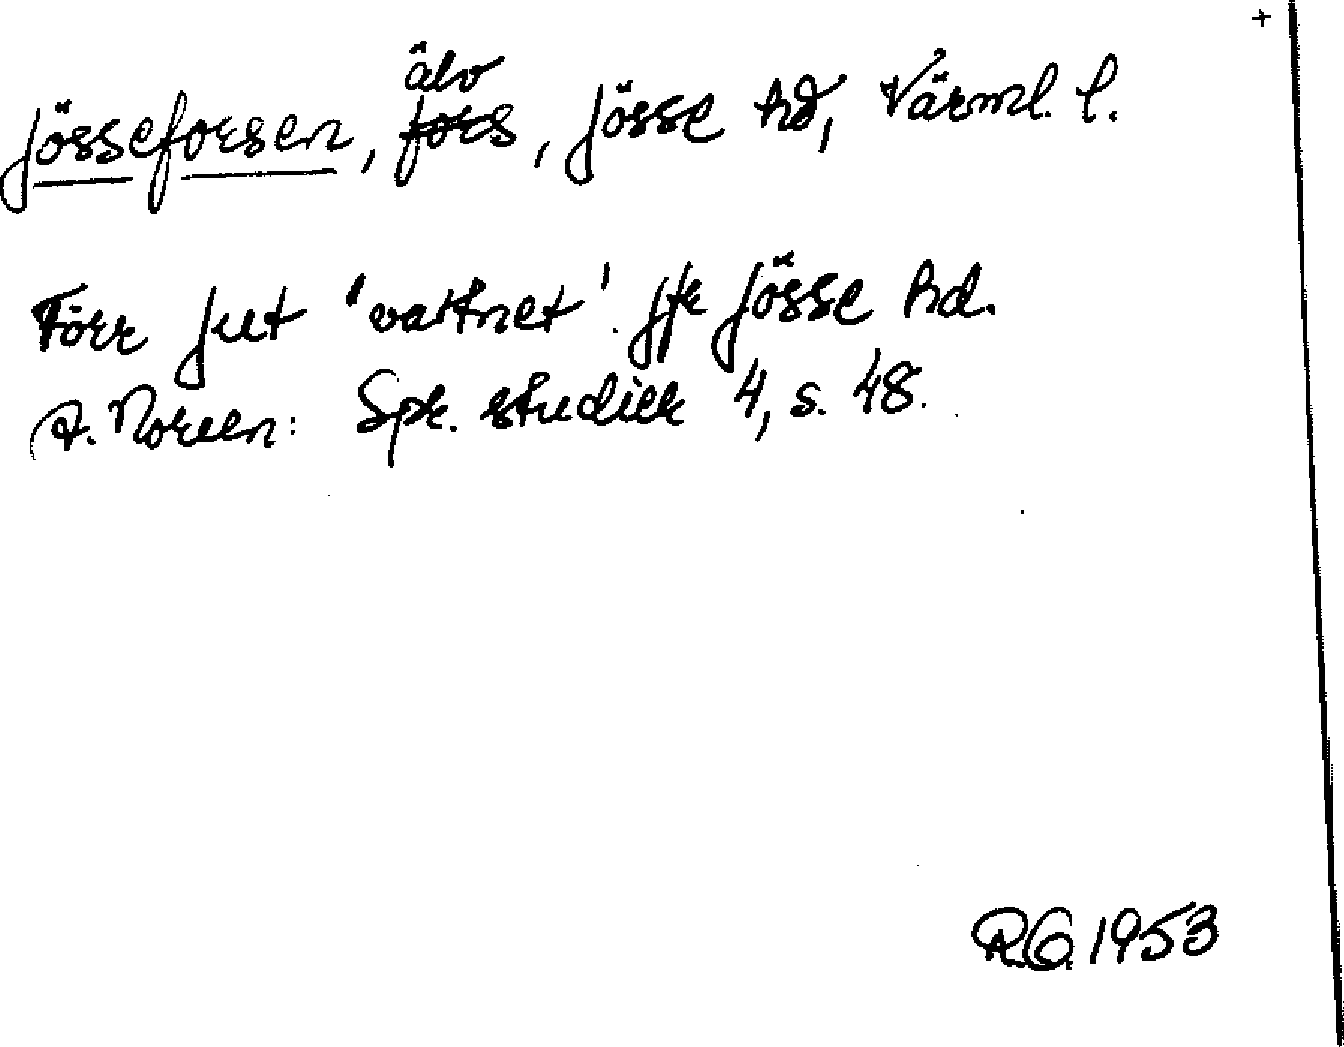 +
Jösseforsen, älv fors, Jösse hd, Värml. l.
Förr Jut 'vattnet'. Jfr Jösse hd.
A. Noreen: Spr. studier 4, s. 48.
R.G. 1953